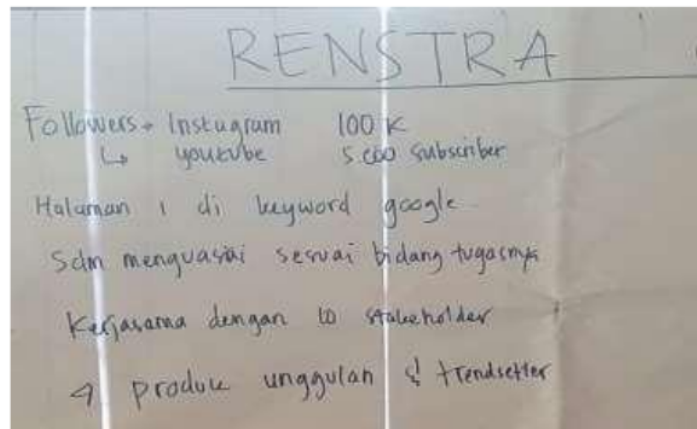 RENSTRA
Followers → Instagram 100 K
↳ youtube 5.000 Subscriber
Halaman 1 di keyword google
Sdm menguasai sesuai bidang tugasnya
Kerjasama dengan 10 stakeholder
produk unggulan & trendsetter